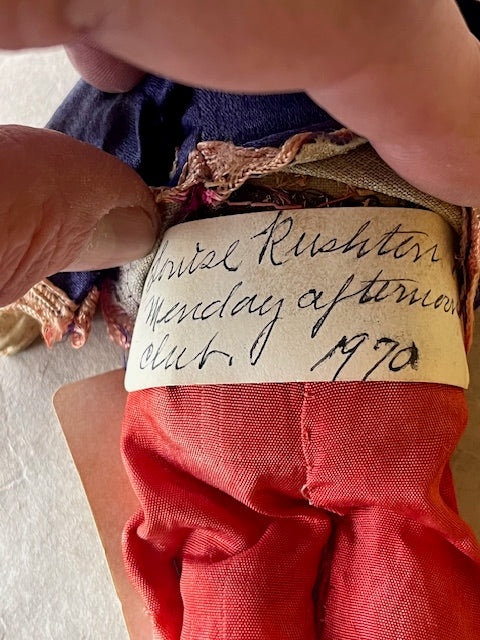 Louise Rushton
Monday afternoon
club. 1970